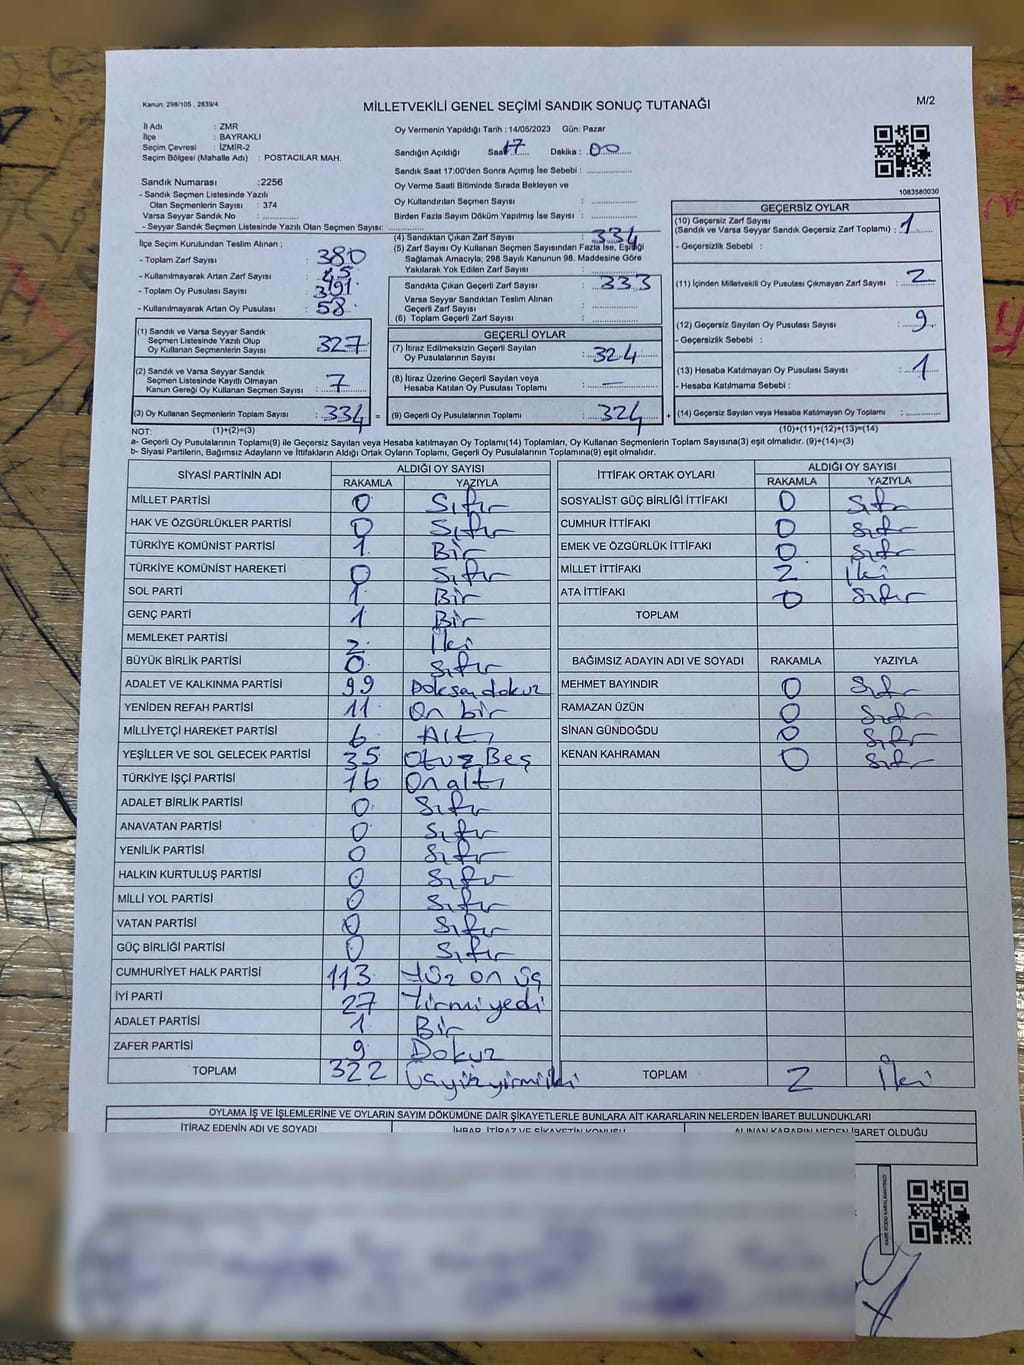 Kanun; 298/105 , 2839/4
MİLLETVEKİLİ GENEL SEÇİMİ SANDIK SONUÇ TUTANAĞI
M/2
İl Adı : ZMR
İlçe : BAYRAKLI
Seçim Çevresi : İZMİR-2
Seçim Bölgesi (Mahalle Adı) : POSTACILAR MAH.
Oy Vermenin Yapıldığı Tarih : 14/05/2023 Gün: Pazar
Sandığın Açıldığı Saat 17 Dakika : 00
Sandık Saat 17:00'den Sonra Açımış İse Sebebi :
Oy Verme Saati Bitiminde Sırada Bekleyen ve
Oy Kullandırılan Seçmen Sayısı :
Birden Fazla Sayım Döküm Yapılmış İse Sayısı :
1083580030
Sandık Numarası :2256
- Sandık Seçmen Listesinde Yazılı
Olan Seçmenlerin Sayısı : 374
Varsa Seyyar Sandık No :
- Seyyar Sandık Seçmen Listesinde Yazılı Olan Seçmen Sayısı:
İlçe Seçim Kurulundan Teslim Alınan ;
- Toplam Zarf Sayısı : 380
- Kullanılmayarak Artan Zarf Sayısı : 45
- Toplam Oy Pusulası Sayısı : 391
- Kullanılmayarak Artan Oy Pusulası : 58
(1) Sandık ve Varsa Seyyar Sandık
Seçmen Listesinde Yazılı Olup
Oy Kullanan Seçmenlerin Sayısı : 327
(2) Sandık ve Varsa Seyyar Sandık
Seçmen Listesinde Kayıtlı Olmayan
Kanun Gereği Oy Kullanan Seçmen Sayısı : 7
(3) Oy Kullanan Seçmenlerin Toplam Sayısı : 334 =
(4) Sandıktan Çıkan Zarf Sayısı : 334
(5) Zarf Sayısı Oy Kullanan Seçmen Sayısından Fazla İse, Eşitliği
Sağlamak Amacıyla; 298 Sayılı Kanunun 98. Maddesine Göre
Yakılarak Yok Edilen Zarf Sayısı :
Sandıkta Çıkan Geçerli Zarf Sayısı : 333
Varsa Seyyar Sandıktan Teslim Alınan
Geçerli Zarf Sayısı :
(6) Toplam Geçerli Zarf Sayısı :
GEÇERLİ OYLAR
(7) İtiraz Edilmeksizin Geçerli Sayılan
Oy Pusulalarının Sayısı : 324
(8) İtiraz Üzerine Geçerli Sayılan veya
Hesaba Katılan Oy Pusulası Toplamı : —
(9) Geçerli Oy Pusulalarının Toplamı : 324 +
GEÇERSİZ OYLAR
(10) Geçersiz Zarf Sayısı
(Sandık ve Varsa Seyyar Sandık Geçersiz Zarf Toplamı) : 1
- Geçersizlik Sebebi :
(11) İçinden Milletvekili Oy Pusulası Çıkmayan Zarf Sayısı : 2
(12) Geçersiz Sayılan Oy Pusulası Sayısı : 9
- Geçersizlik Sebebi :
(13) Hesaba Katılmayan Oy Pusulası Sayısı : 1
- Hesaba Katılmama Sebebi :
(14) Geçersiz Sayılan veya Hesaba Katılmayan Oy Toplamı :
NOT: (1)+(2)=(3)
(10)+(11)+(12)+(13)=(14)
a- Geçerli Oy Pusulalarının Toplamı(9) ile Geçersiz Sayılan veya Hesaba katılmayan Oy Toplamı(14) Toplamları, Oy Kullanan Seçmenlerin Toplam Sayısına(3) eşit olmalıdır. (9)+(14)=(3)
b- Siyasi Partilerin, Bağımsız Adayların ve İttifakların Aldığı Ortak Oyların Toplamı, Geçerli Oy Pusulalarının Toplamına(9) eşit olmalıdır.
SİYASİ PARTİNİN ADI ALDIĞI OY SAYISI
RAKAMLA YAZIYLA
MİLLET PARTİSİ 0 Sıfır
HAK VE ÖZGÜRLÜKLER PARTİSİ 0 Sıfır
TÜRKİYE KOMÜNİST PARTİSİ 1 Bir
TÜRKİYE KOMÜNİST HAREKETİ 0 Sıfır
SOL PARTİ 1 Bir
GENÇ PARTİ 1 Bir
MEMLEKET PARTİSİ 2 İki
BÜYÜK BİRLİK PARTİSİ 0 Sıfır
ADALET VE KALKINMA PARTİSİ 99 Doksan dokuz
YENİDEN REFAH PARTİSİ 11 On bir
MİLLİYETÇİ HAREKET PARTİSİ 6 Altı
YEŞİLLER VE SOL GELECEK PARTİSİ 35 Otuz Beş
TÜRKİYE İŞÇİ PARTİSİ 16 Onaltı
ADALET BİRLİK PARTİSİ 0 Sıfır
ANAVATAN PARTİSİ 0 Sıfır
YENİLİK PARTİSİ 0 Sıfır
HALKIN KURTULUŞ PARTİSİ 0 Sıfır
MİLLİ YOL PARTİSİ 0 Sıfır
VATAN PARTİSİ 0 Sıfır
GÜÇ BİRLİĞİ PARTİSİ 0 Sıfır
CUMHURİYET HALK PARTİSİ 113 Yüz on üç
İYİ PARTİ 27 Yirmi yedi
ADALET PARTİSİ 1 Bir
ZAFER PARTİSİ 9 Dokuz
TOPLAM 322 Üçyüzyirmiiki
İTTİFAK ORTAK OYLARI ALDIĞI OY SAYISI
RAKAMLA YAZIYLA
SOSYALİST GÜÇ BİRLİĞİ İTTİFAKI 0 Sıfır
CUMHUR İTTİFAKI 0 Sıfır
EMEK VE ÖZGÜRLÜK İTTİFAKI 0 Sıfır
MİLLET İTTİFAKI 2 İki
ATA İTTİFAKI 0 Sıfır
TOPLAM
BAĞIMSIZ ADAYIN ADI VE SOYADI RAKAMLA YAZIYLA
MEHMET BAYINDIR 0 Sıfır
RAMAZAN ÜZÜN 0 Sıfır
SİNAN GÜNDOĞDU 0 Sıfır
KENAN KAHRAMAN 0 Sıfır
TOPLAM 2 İki
OYLAMA İŞ VE İŞLEMLERİNE VE OYLARIN SAYIM DÖKÜMÜNE DAİR ŞİKAYETLERLE BUNLARA AİT KARARLARIN NELERDEN İBARET BULUNDUKLARI
İTİRAZ EDENİN ADI VE SOYADI İHBAR, İTİRAZ VE ŞİKAYETİN KONUSU ALINAN KARARIN NEDEN İBARET OLDUĞU